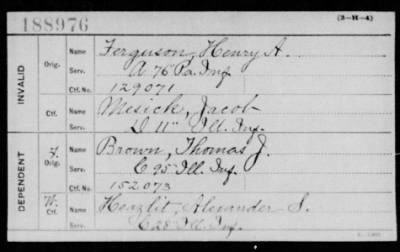 188976
(3—H—4)
INVALID
Orig.
Name Ferguson, Henry A.
Serv. A 76 Pa. Inf.
Ctf. No. 129071
Ctf.
Name Mesick, Jacob
Serv. D 11" Ill. Inf.
DEPENDENT
Orig.
Name Brown, Thomas J.
Serv. C 95 Ill. Inf.
Ctf. No. 152073
W.
Ctf.
Name Heazlit, Alexander S.
Serv. C 28 Ill. Inf.